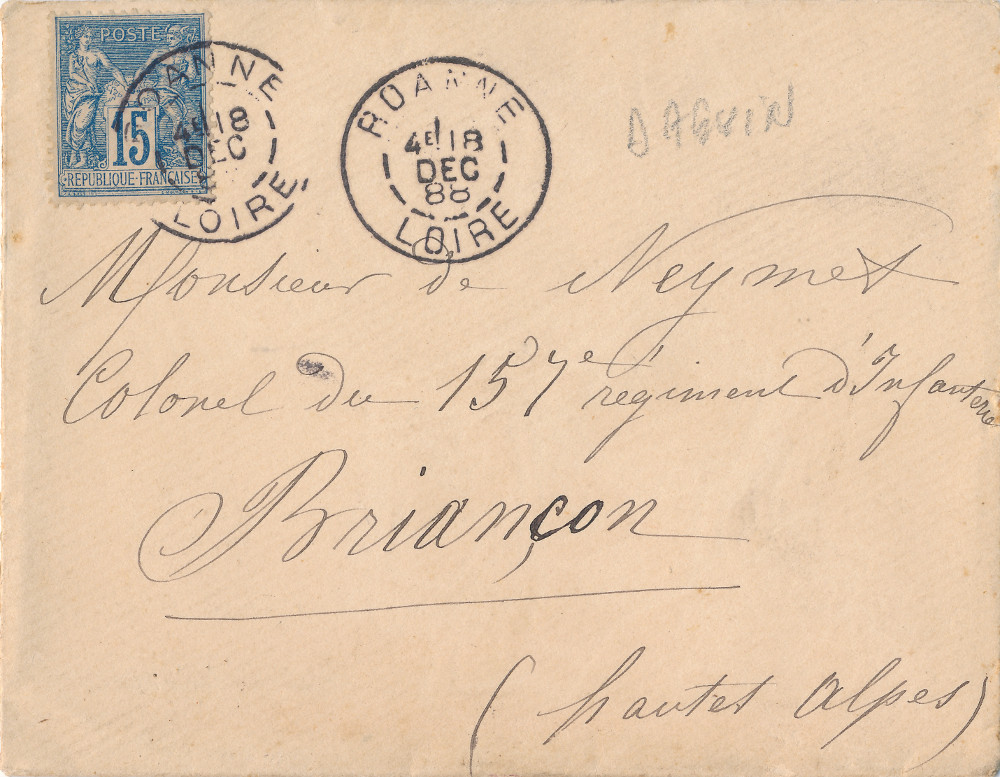 POSTE
15
REPUBLIQUE·FRANÇAISE
ROANNE
4E 18
DEC
LOIRE
ROANNE
4E 18
DEC
88
LOIRE
DAGUIN
Monsieur de Neymet
Colonel du 157e régiment d'Infanterie
Briançon
(hautes Alpes)